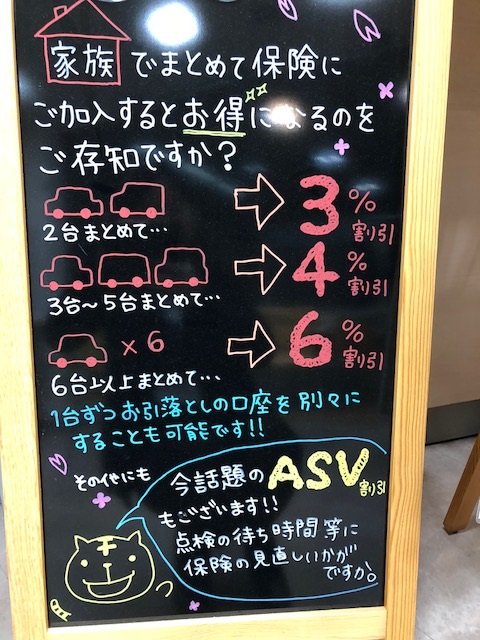 家族でまとめて保険に
ご加入するとお得になるのを
ご存知ですか？
3%割引
2台まとめて…
4%割引
3台〜5台まとめて…
×6
6%割引
6台以上まとめて…
1台ずつお引落としの口座を別々に
することも可能です!!
その他にも
今話題のASV割引
もございます!!
点検の待ち時間等に
保険の見直しいかが
ですか。